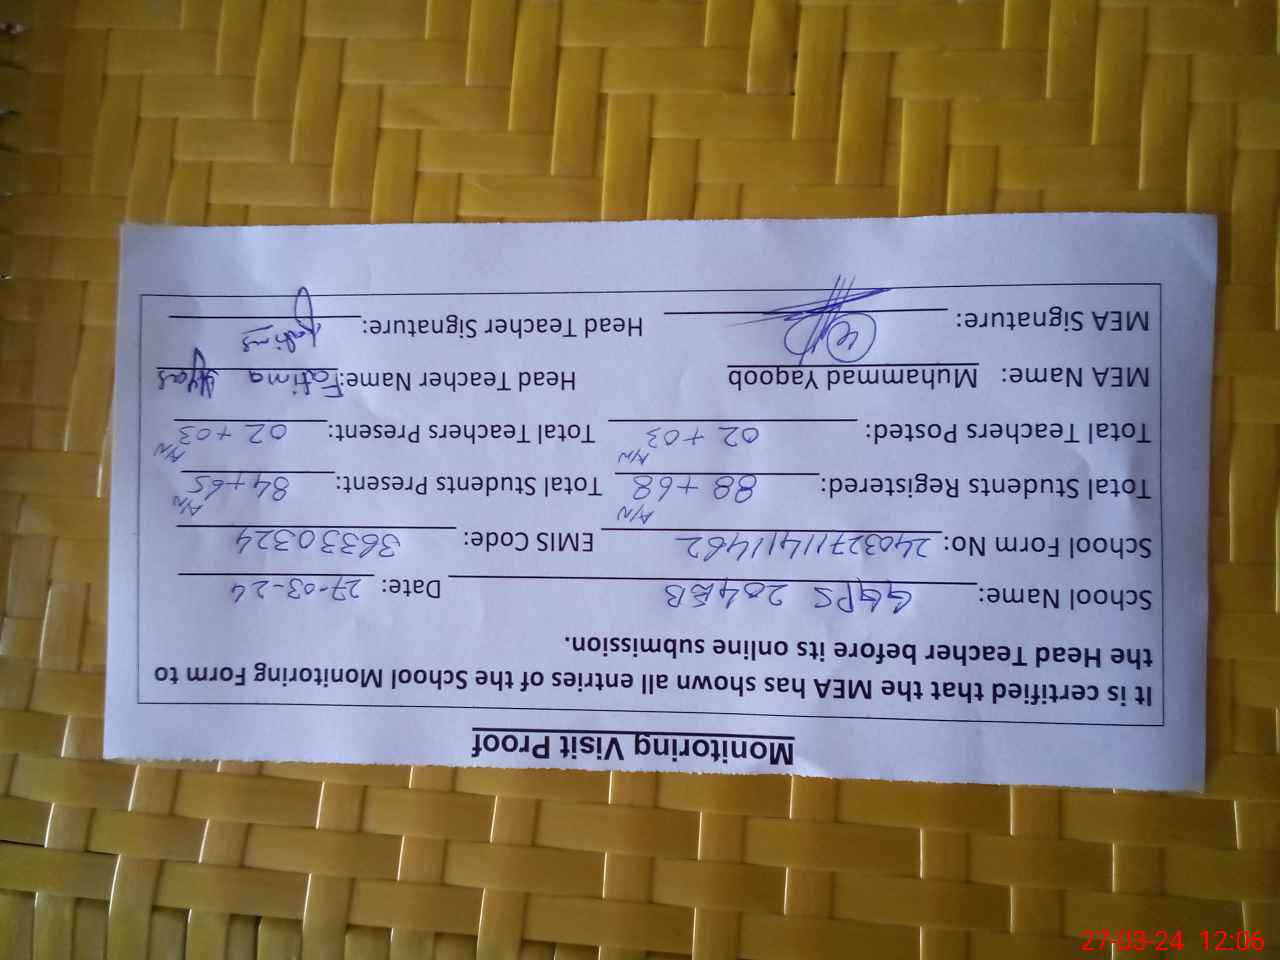 Monitoring Visit Proof
It is certified that the MEA has shown all entries of the School Monitoring Form to
the Head Teacher before its online submission.
School Name: GGPS 204EB Date: 27-03-24
School Form No: 240327114111462 EMIS Code: 36330324
Total Students Registered: 88+68 A/N Total Students Present: 84+65 A/N
Total Teachers Posted: 02+03 A/N Total Teachers Present: 02+03 A/N
MEA Name: Muhammad Yaqoob Head Teacher Name: Fatima
MEA Signature: Head Teacher Signature: Fatima
27-03-24 12:06